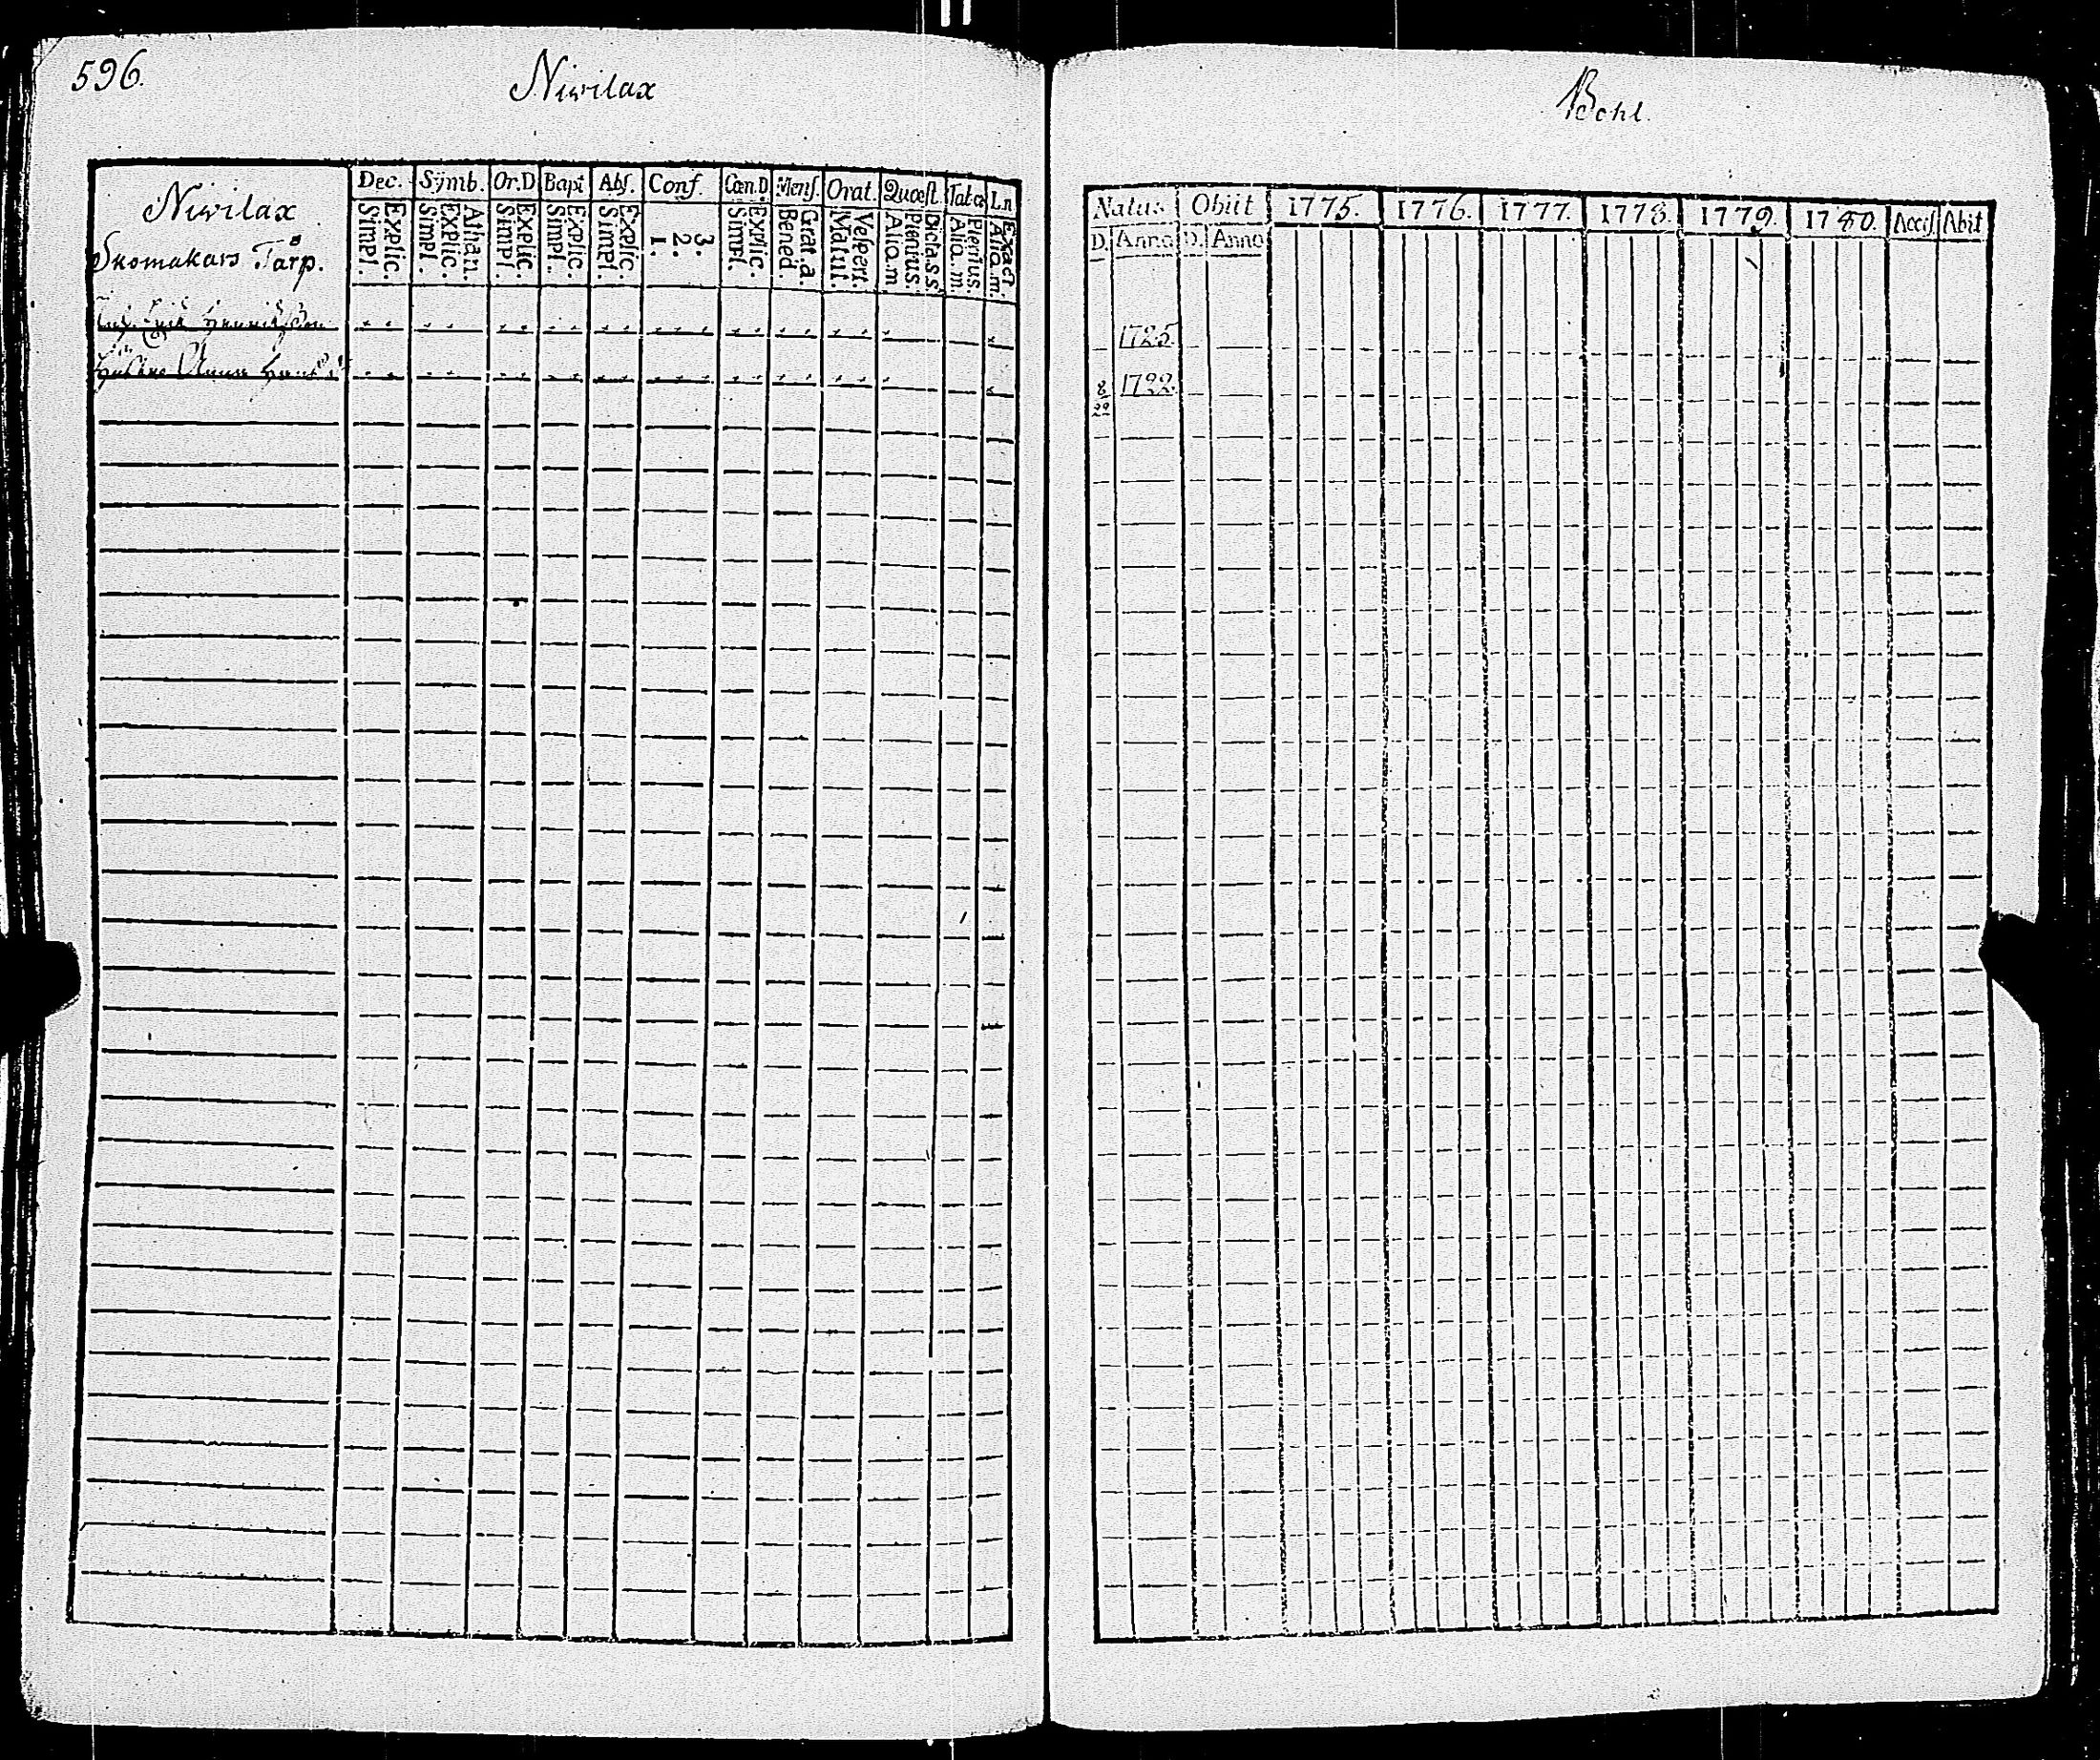 596.
Niwilax
Niwilax
Skomakars Tårp.
Dec. Symb. Or.D Bapt Abs. Conf. Cœn.D Mens. Orat. Quæst. Tab.œ L.n
Simpl. Explic. Simpl. Explic. Athan. Simpl. Explic. Simpl. Explic. Simpl. Explic. 1. 2. 3. Simpl. Explic. Bened. Grat.a. Matut. Vespert. Aliq.m Plenius. Dicta.s.s. Aliq.m Plenius. Aliq.m. Exact
Erik Henrichson
Hustru Anna
Bohl.
Natus Obiit 1775. 1776. 1777. 1778. 1779. 1780. Acces Abit
D. Anno D. Anno
1725.
8/29 1722.